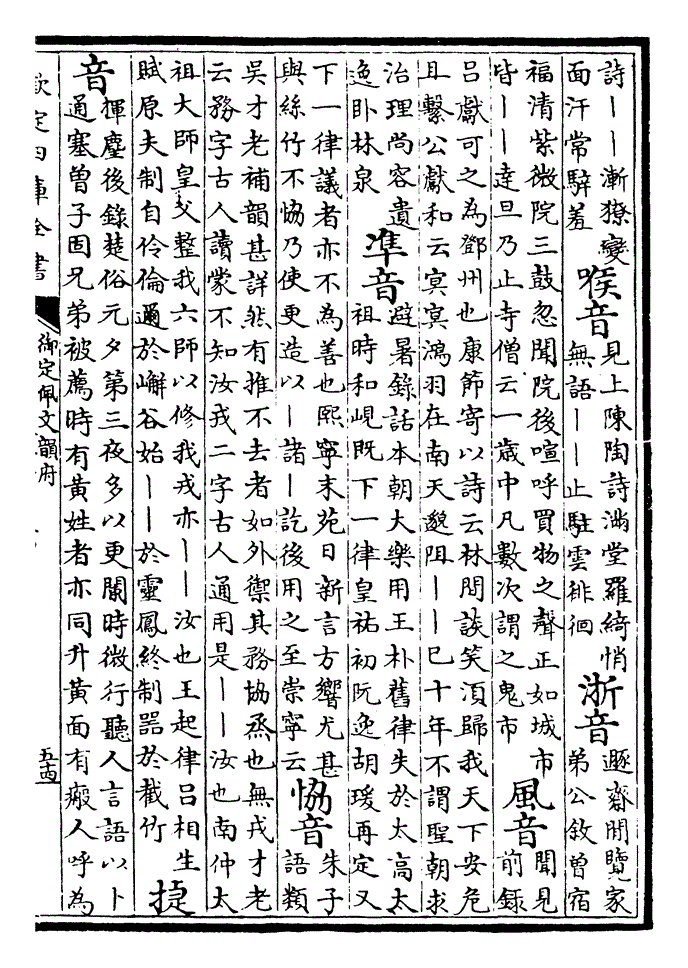 詩丨丨漸獠變
面汗常騂羞
喉音
見上陳陶詩滿堂羅綺悄
無語丨丨止駐雲徘徊
浙音
遯齋閒覽家
弟公敘曾宿
福清紫微院三鼓忽聞院後喧呼買物之聲正如城市
皆丨丨達旦乃止寺僧云一歲中凡數次謂之鬼市
風音
聞見
前錄
呂獻可之為鄧州也康節寄以詩云林間談笑湏歸我天下安危
且繫公獻和云冥冥鴻羽在南天邈阻丨丨巳十年不謂聖朝求
治理尚容遺
逸卧林泉
準音
避暑錄話本朝大樂用王朴舊律失於太高太
祖時和峴既下一律皇祐初阮逸胡瑗再定又
下一律議者亦不為善也熙寧末范日新言方響尤甚
與絲竹不協乃使更造以丨諸丨訖後用之至崇寧云
協音
朱子
語類
吳才老補韻甚詳然有推不去者如外禦其務協烝也無戎才老
云務字古人讀蒙不知汝戎二字古人通用是丨丨汝也南仲太
祖大師皇父整我六師以修我戎亦丨丨汝也王起律呂相生
賦原夫制自伶倫遁於嶰谷始丨丨於靈鳳終制器於截竹
捷
音
揮麈後錄楚俗元夕第三夜多以更闌時微行聽人言語以卜
通塞曾子固兄弟被薦時有黃姓者亦同升黃面有瘢人呼為
欽定四庫全書
御定佩文韻府
五十四